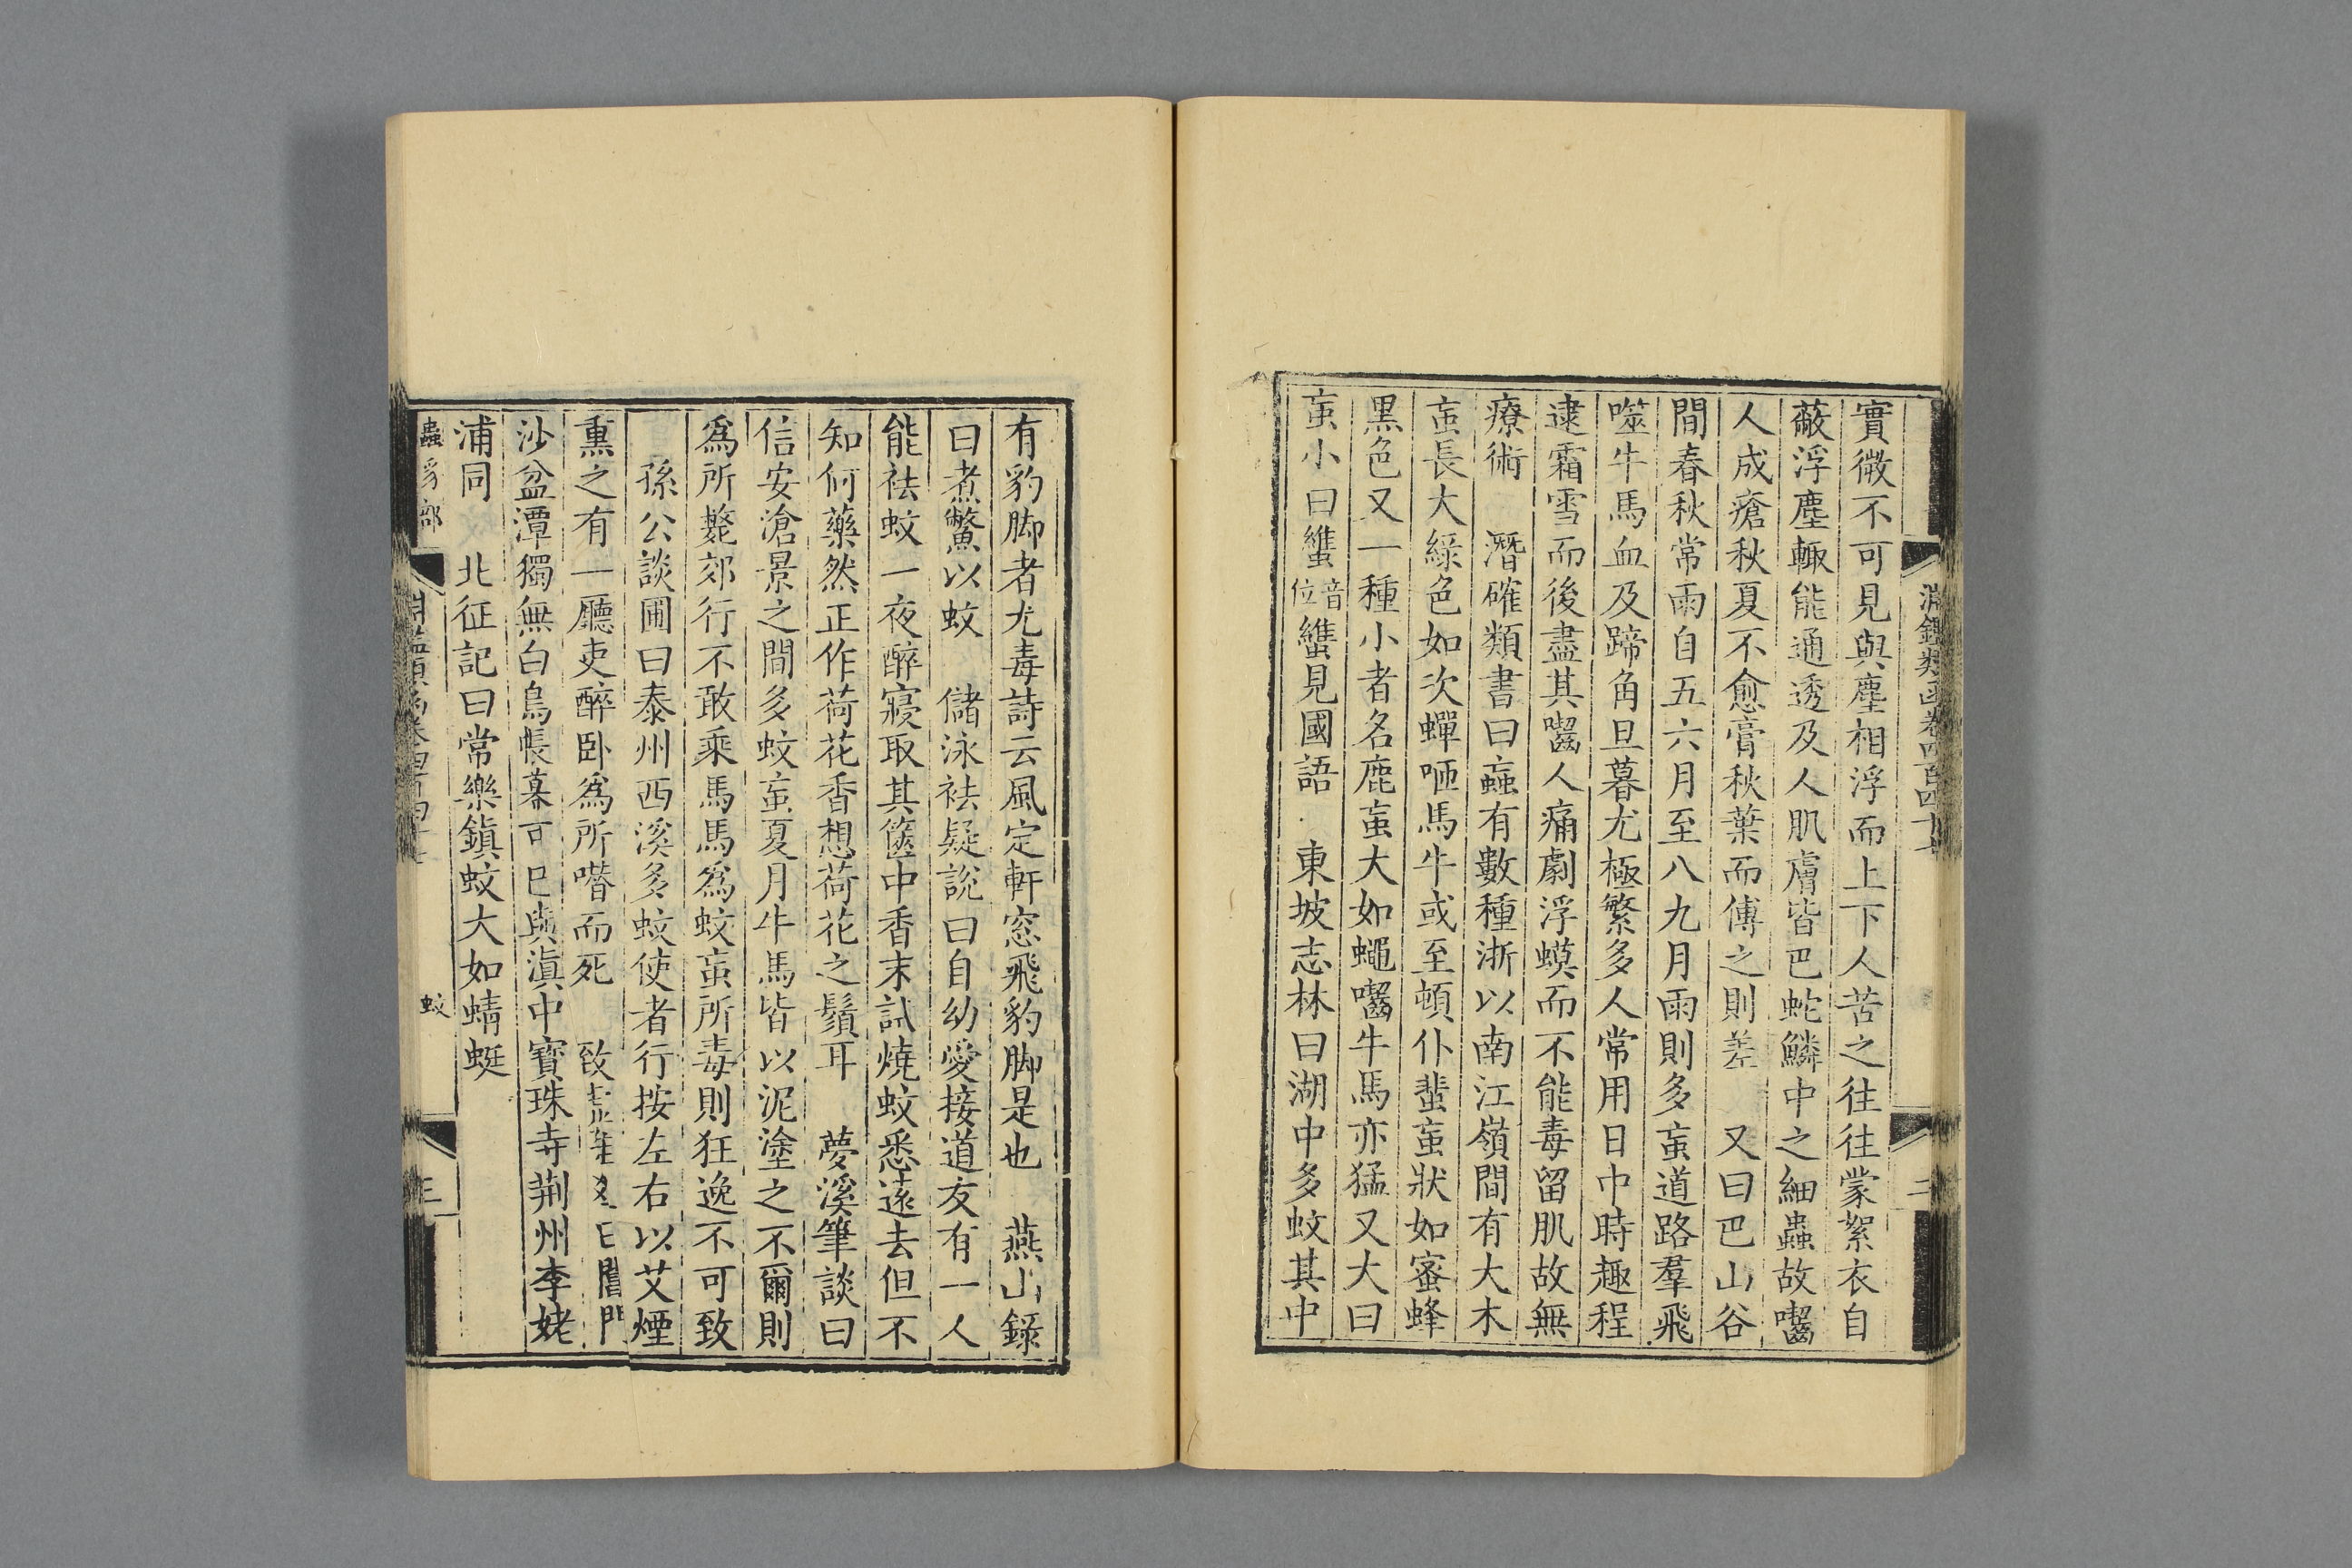 淵鑑類函卷四百四十七
二
實微不可見與塵相浮而上下人苦之往往蒙絮衣自
蔽浮塵輙能通透及人肌膚皆巴蛇鱗中之細蟲故囓
人成瘡秋夏不愈膏秋葉而傅之則差　又曰巴山谷
間春秋常雨自五六月至八九月雨則多䖟道路羣飛
噬牛馬血及蹄角旦暮尤極繁多人常用日中時趣程
逮霜雪而後盡其囓人痛劇浮蟆而不能毒留肌故無
療術　潛確類書曰蝱有數種浙以南江嶺間有大木
䖟長大綠色如次蟬咂馬牛或至頓仆蜚䖟狀如蜜蜂
黑色又一種小者名鹿䖟大如蠅囓牛馬亦猛又大曰
䖟小曰蟁音位蟁見國語　東坡志林曰湖中多蚊其中
有豹脚者尤毒詩云風定軒窓飛豹脚是也　燕山錄
曰煮鱉以蚊　儲泳袪疑說曰自幼愛接道友有一人
能袪蚊一夜醉寢取其篋中香末試燒蚊悉遠去但不
知何藥然正作荷花香想荷花之鬚耳　夢溪筆談曰
信安滄景之間多蚊䖟夏月牛馬皆以泥塗之不爾則
爲所斃郊行不敢乘馬馬爲蚊䖟所毒則狂逸不可致
孫公談圃曰泰州西溪多蚊使者行按左右以艾煙
熏之有一廳吏醉卧爲所噆而死　致虛雜
沙盆潭獨無白鳥帳幕可已與滇中寶珠寺荆州李姥
浦同　北征記曰常樂鎮蚊大如蜻蜓
蟲豸部
蚊
三